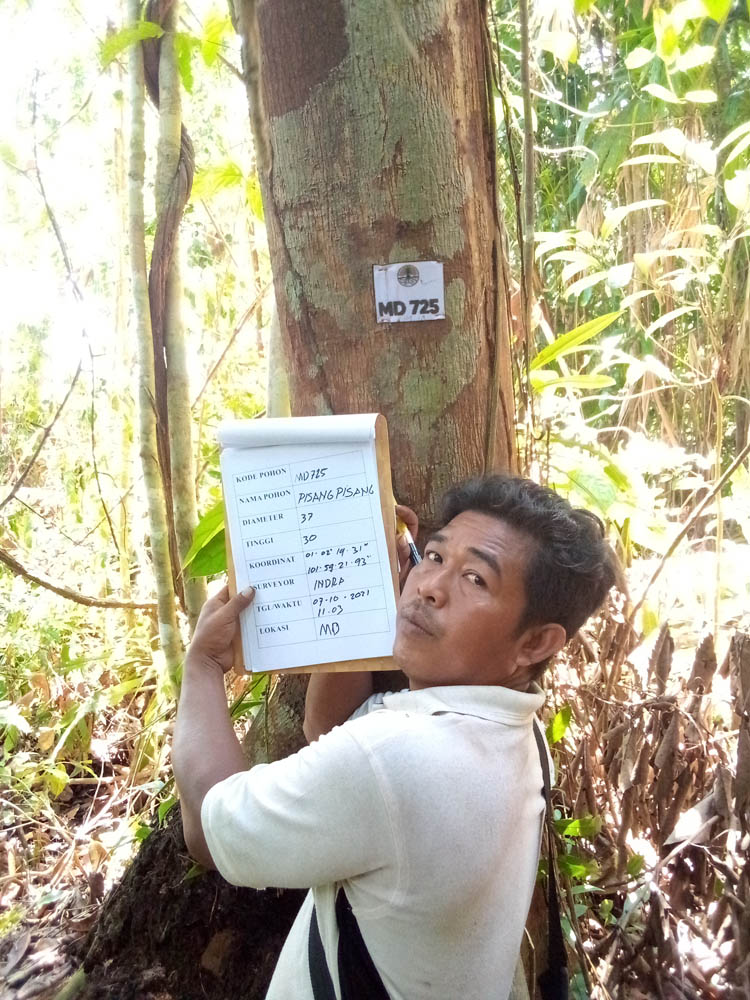 MD 725
KODE POHON MD725
NAMA POHON PISANG PISANG
DIAMETER 37
TINGGI 30
KOORDINAT 01·02' 19·31"
101·59·21·93"
SURVEYOR INDRA
TGL/WAKTU 07-10-2021
11.03
LOKASI MB